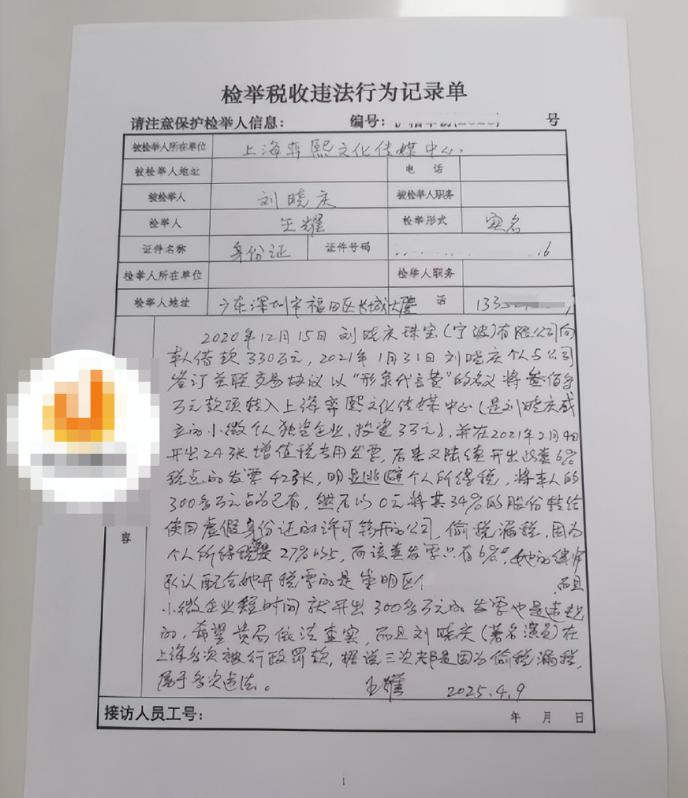 检举税收违法行为记录单
请注意保护检举人信息： 编号： 号
被检举人所在单位 上海弈熙文化传媒中心.
被检举人地址 电 话
被检举人 刘晓庆 被检举人职务
检举人 王耀 检举形式 实名
证件名称 身份证 证件号码 6
检举人所在单位 检举人职务
检举人地址 广东深圳市福田区长城大厦 话 133
2020年12月15日刘晓庆珠宝（宁波）有限公司向
本人借款330万元，2021年1月31日刘晓庆个人与公司
签订关联交易协议以“形象代言费”的名义将叁佰多
万元款项转入上海弈熙文化传媒中心（是刘晓庆成
立的小微个人独资企业，投资3万元），并在2021年2月4日
开出24张增值税专用发票，后来又陆续开出此类6%
税点的发票42张，明显逃避个人所得税，将本人的
300多万元占为己有，然后以0元将其34%的股份转给
使用虚假身份证的许可转所的公司，偷税漏税，因为
个人所得税要2 以上，而该类发票只有6%，她的律师
承认配合她开税票的是崇明区个 而且
小微企业短时间就开出300多万元的发票也是违规
的，希望贵局依法查实，而且刘晓庆（著名演员）在
上海多次被行政罚款，据说三次都是因为偷税漏税，
属于多次违法。 王耀 2025.4.9
容
接访人员工号： 年 月 日
1